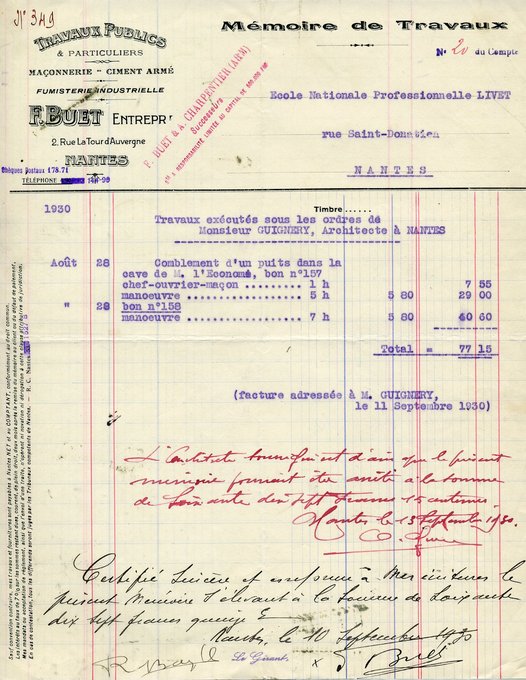 N° 349
TRAVAUX PUBLICS
& PARTICULIERS
MAÇONNERIE - CIMENT ARMÉ
FUMISTERIE INDUSTRIELLE
F. BUET ENTREPR
2, Rue La Tour d'Auvergne
NANTES
Chèques Postaux 178.71
TÉLÉPHONE
F. BUET & A. CHARPENTIER (ARN)
Successeurs
Mémoire de Travaux
N° 20 du Compte
Ecole Nationale Professionnelle LIVET
rue Saint-Donatien
NANTES
1930 Timbre ......
Travaux exécutés sous les ordres de
Monsieur GUIGNERY, Architecte à NANTES
Août 28 Comblement d'un puits dans la
cave de M. l'Econome, bon n°157
chef-ouvrier-maçon ......... 1 h 7 55
manoeuvre .................. 5 h 5 80 29 00
" 28 bon n°158
manoeuvre .................. 7 h 5 80 40 60
Total = 77 15
(facture adressée à M. GUIGNERY,
le 11 Septembre 1930)
L'Architecte soussigné est d'avis que le présent
mémoire pourrait être arrêté à la somme
de Soixante dix sept francs 15 centimes
Nantes le 13 Septembre 1930.
Certifié sincère et conforme à mes écritures le
présent Mémoire s'élevant à la somme de Soixante
dix sept francs quinze
Nantes, le 10 Septembre 1930
Le Gérant
F. Buet